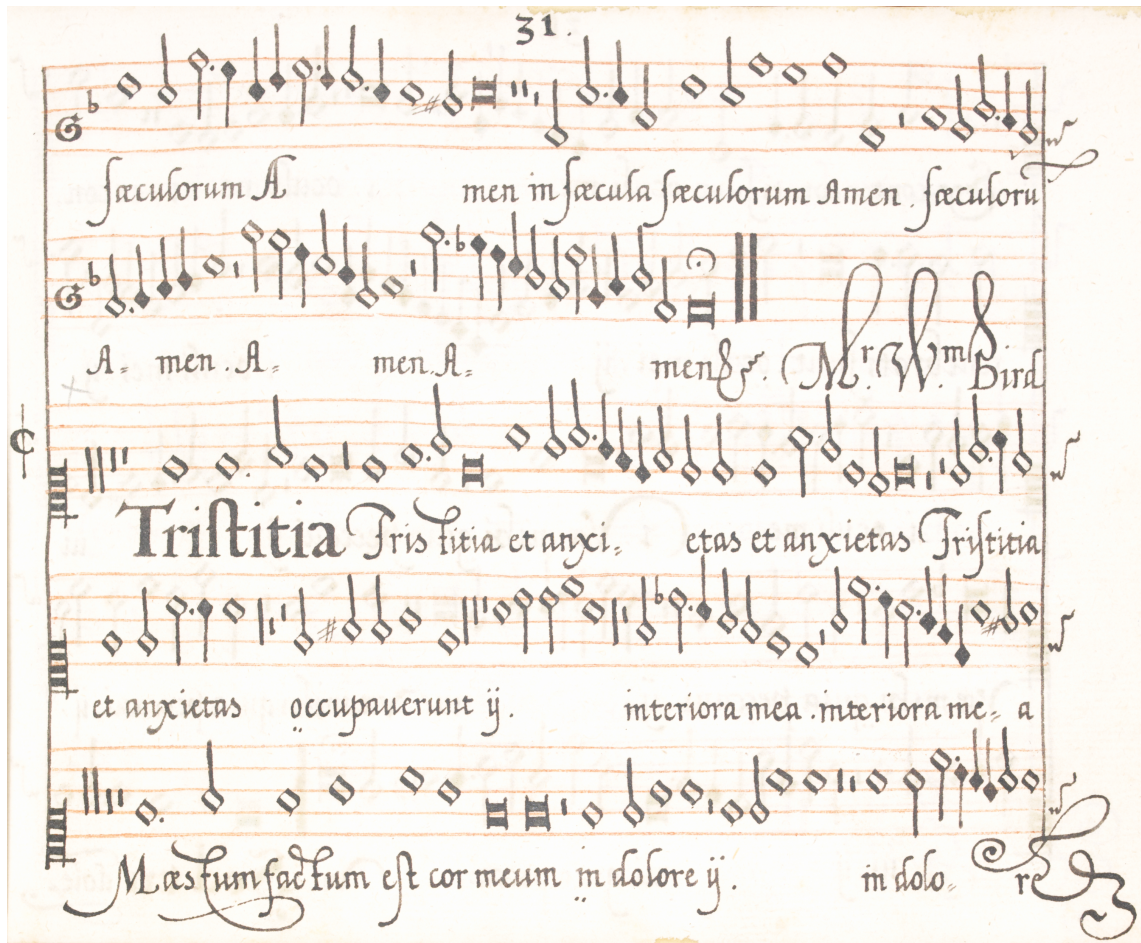 31.
sæculorum A men in sæcula sæculorum Amen. sæculorū
A- men. A- men. A- men Mr. Wm. Bird
Tristitia Tristitia et anxi- etas et anxietas Tristitia
et anxietas occupauerunt ij. interiora mea. interiora me- a
Mæstum factum est cor meum in dolore ij. in dolo- re